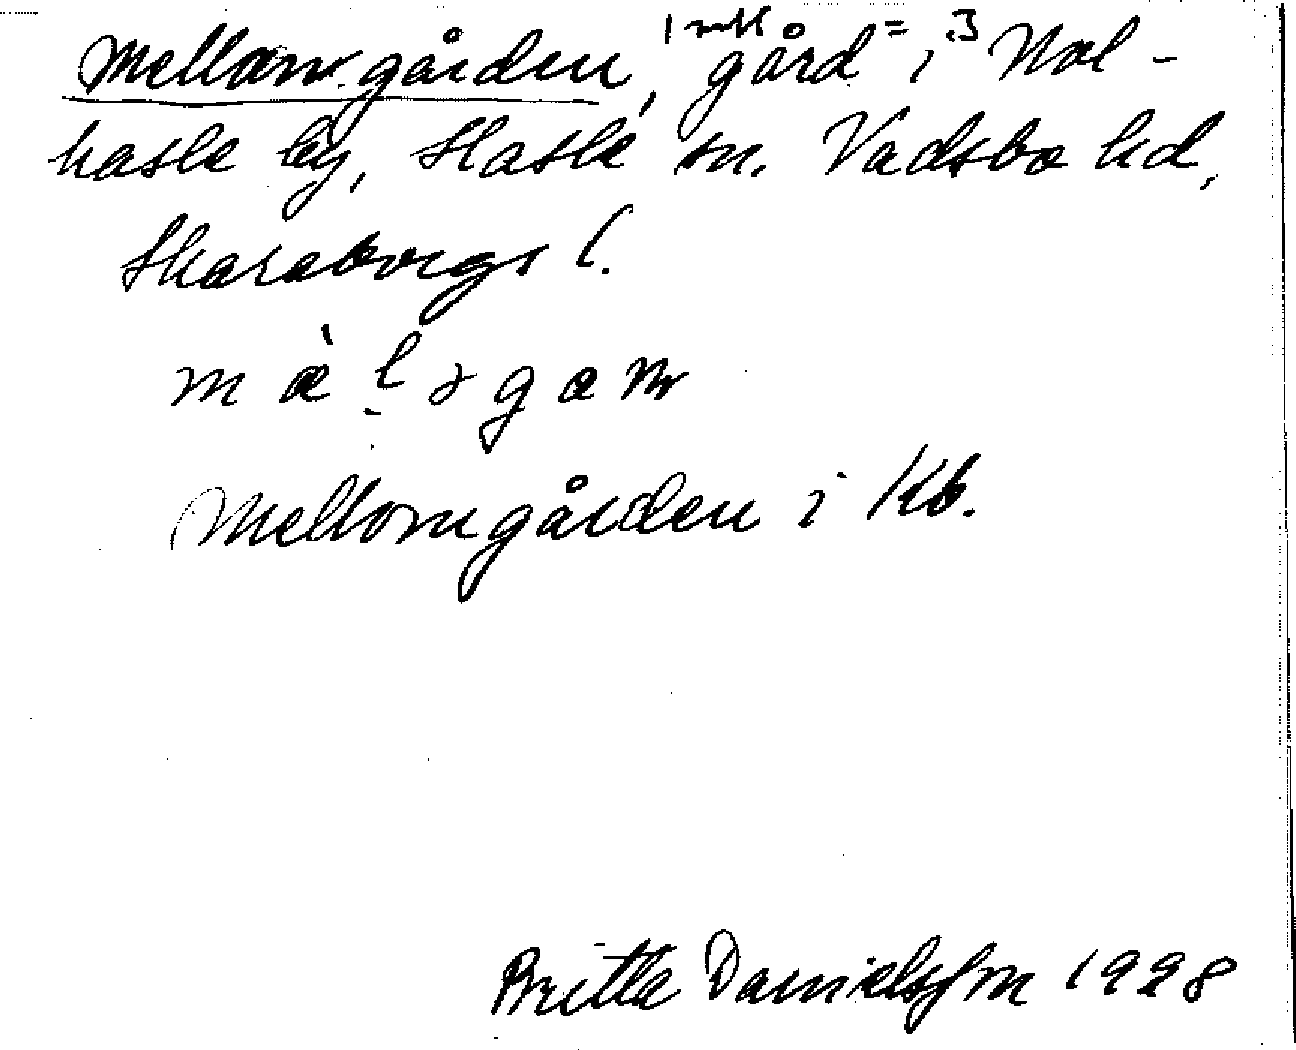 Mellomgården, 1 mtl gård i Nol-
hassle by, Hassle sn. Vadsbo hd,
Skaraborgs l.
Mellomgården i Kb.
Britta Danielsson 1998